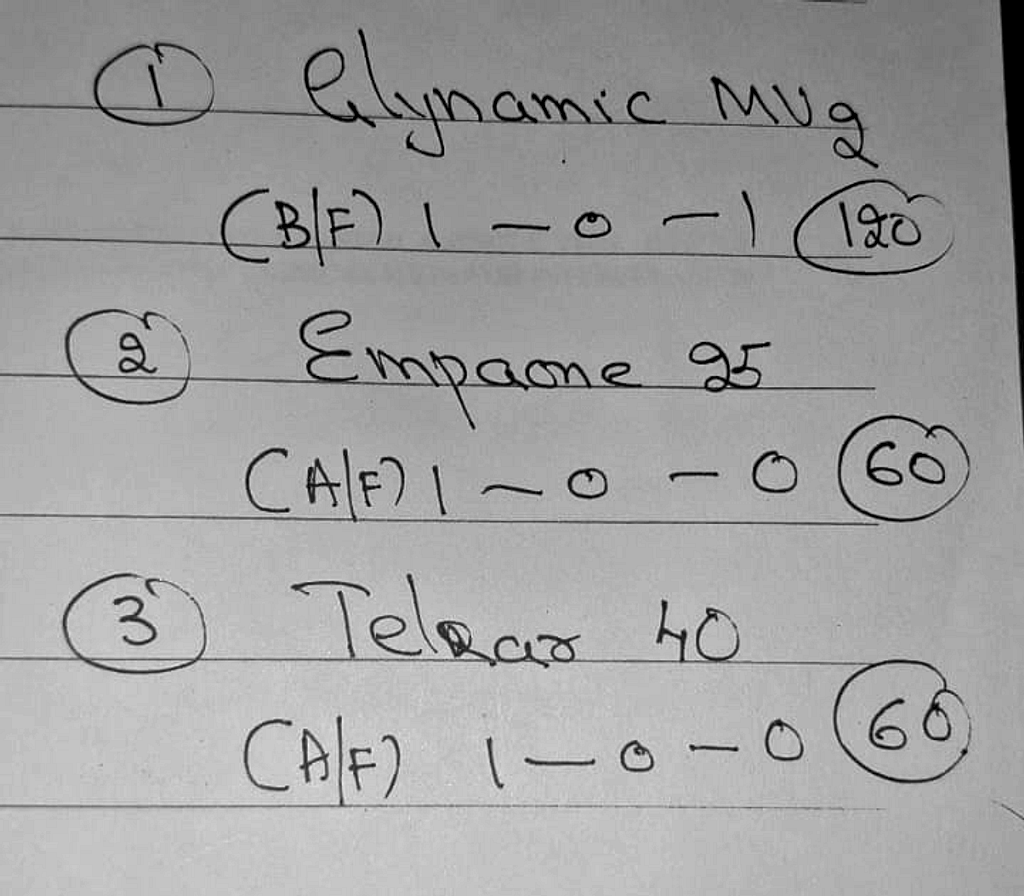 ① Glynamic MV2
(B/F) 1 – 0 – 1 (120)
② Empaone 25
(A/F) 1 – 0 – 0 (60)
③ Telzar 40
(A/F) 1 – 0 – 0 (60)